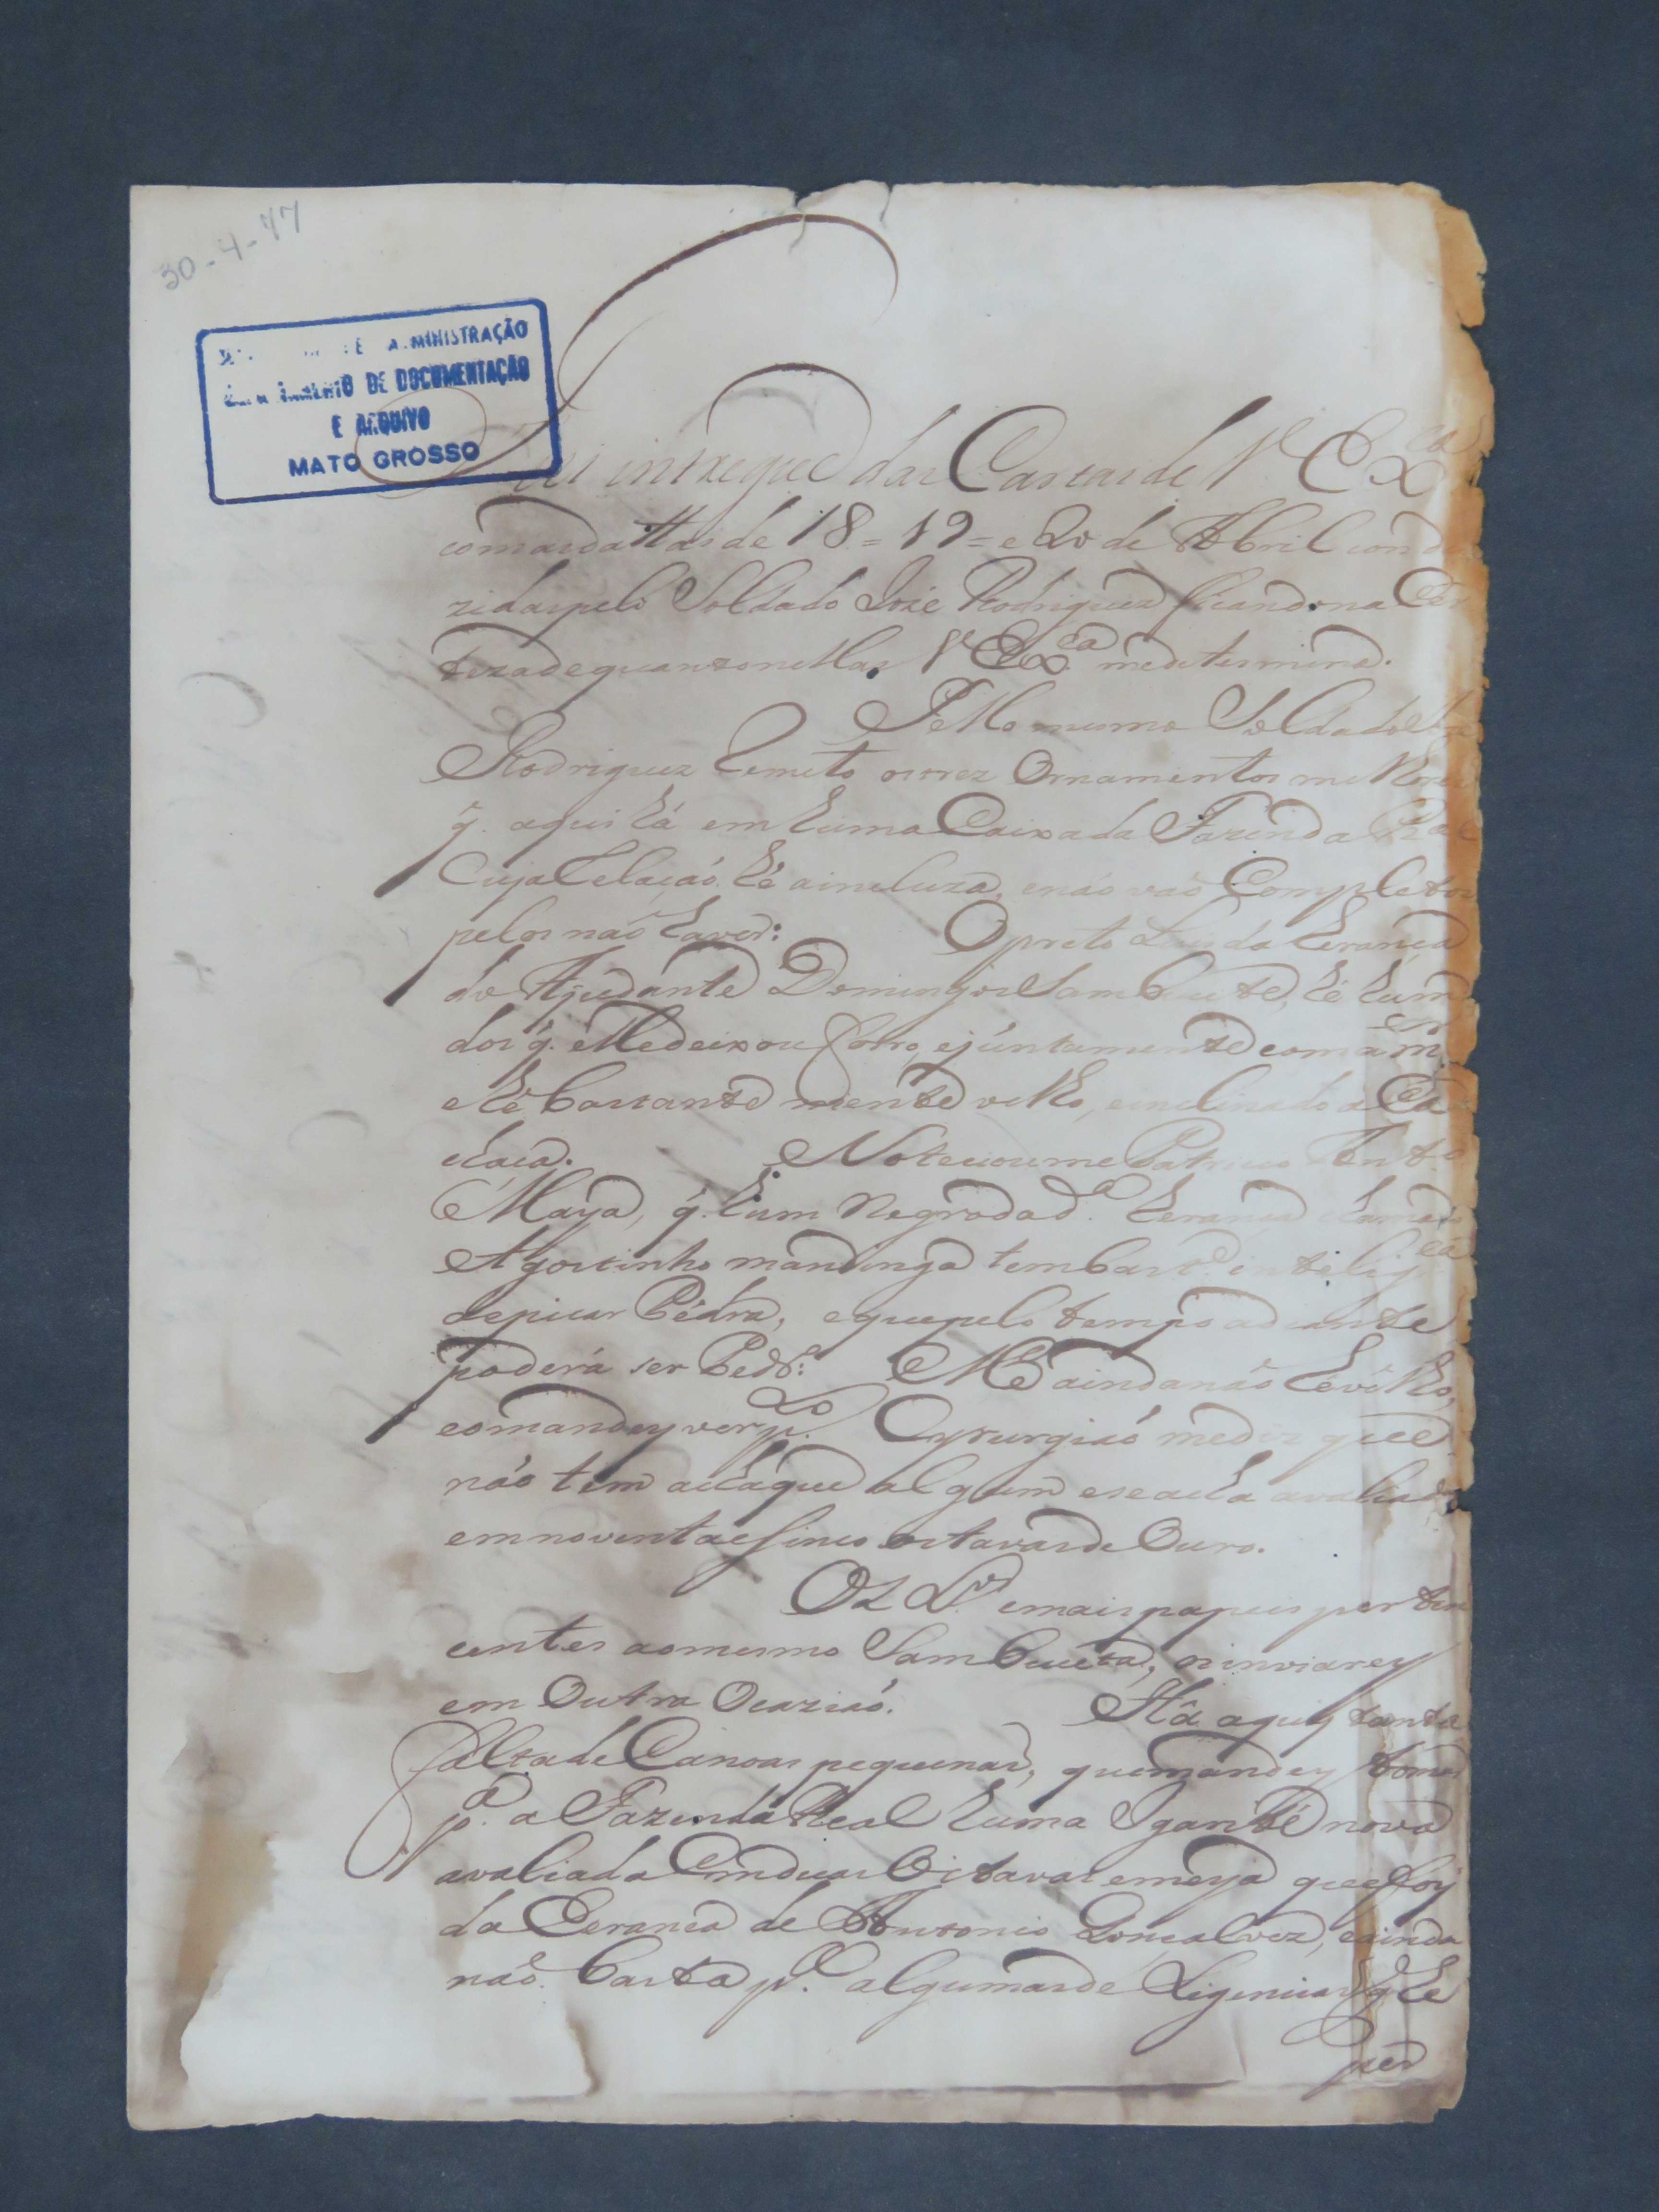 30-4-77
ADMINISTRAÇÃO
DE DOCUMENTAÇÃO
E ARQUIVO
MATO GROSSO
Fui intregue das Cartas de V. Exca
comasdattas de 18 = 19 = e 20 de Abril condu
zidas pelo Soldado Joze Rodriguez ficando na Cer
teza de quanto nellas V. Exca. me determina.
Pello mesmo Soldado Joze
Rodriguez Remeto os trez Ornamentos milhores
q. aqui há em huma Caixa da Fazenda Real
Cuja Relação hé a incluza, e não vão Completos
pelos não haver: O preto Luis da herança
do Ajudante Domingos Sambueta, hé hum
dos q. elle deixou forro, e juntamente com a m.er
e hé bastante mente velho, e inclinado a Ca
chaca. Noteciou me Patricio Ant.o
Maya, q. hum Negro da d.a herança chamado
Agostinho mandinga tem bast.e intelig.ca
de picar Pedra, e que pelo tempo adiante
poderá ser Pedr.o: Elle ainda não hé vélho,
e o mandey ver p.lo Cyrurgião me diz que
não tem achaque algum e se acha avaliado
em noventa e sinco octavas de Ouro.
Os L.vos e mais papeis perten
centes ao mesmo Sambueta, os inviarey
em Outra Ocazião. Há aquy tanta
falta de Canoas pequenas, que mandey tomar
p.a a Fazenda Real huma Igarité nova
avaliada Em duas Oictavas e meya que foy
da Erança de Antonio Gonçalvez, e ainda
não basta p.a algumas de Ligencias q. hé
per